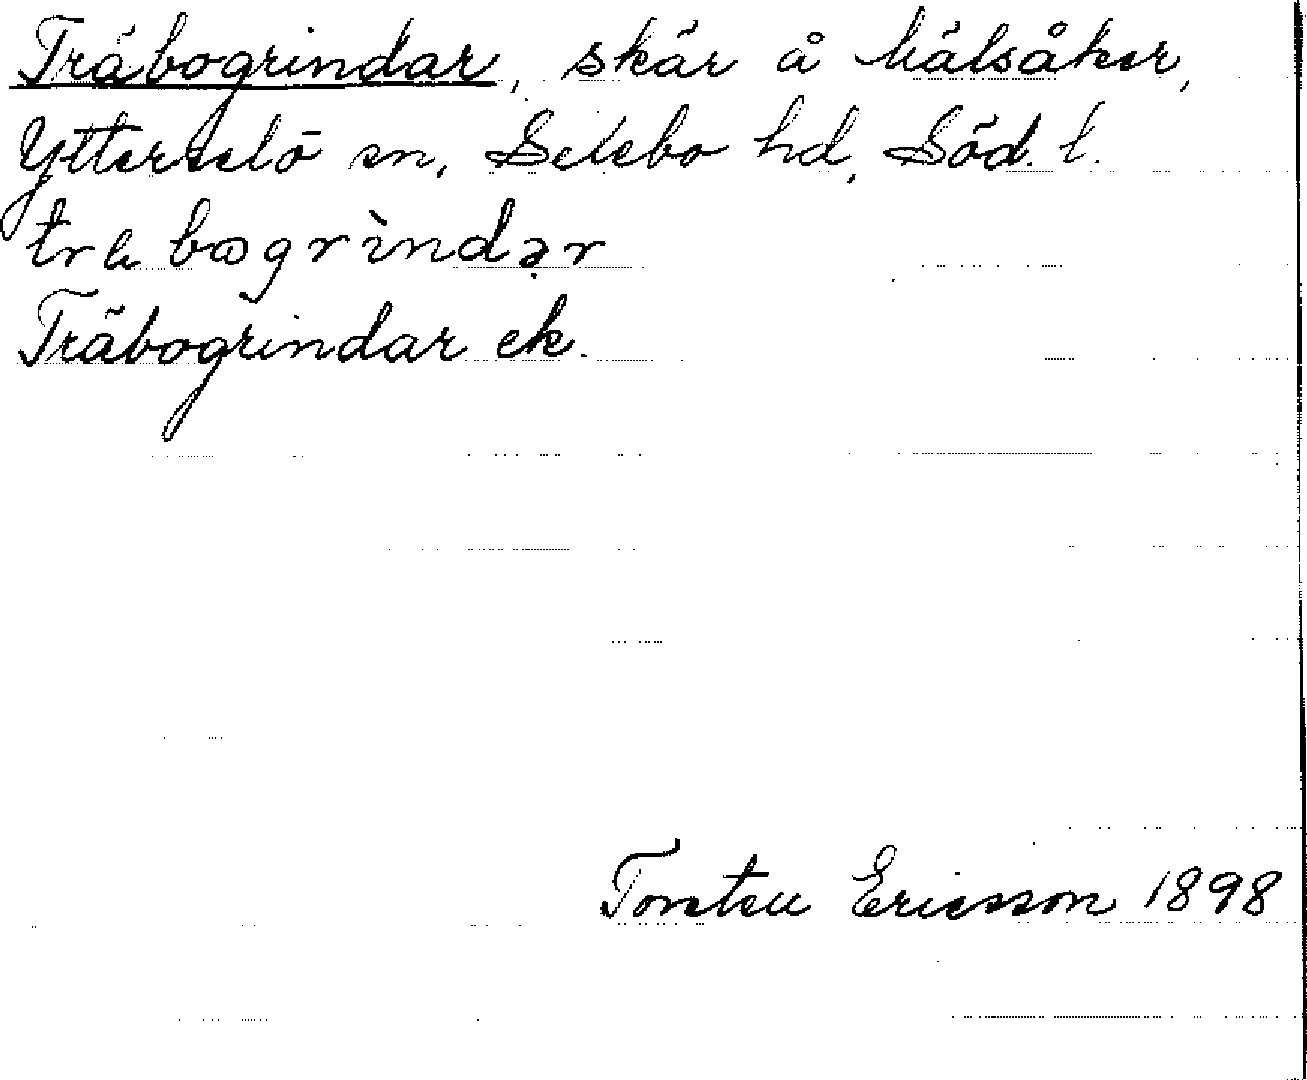 Träbogrindar, skär å Mälsåker,
Ytterselö sn, Selebo hd, Söd. l.
Träbogrindar ek.
Torsten Ericsson 1898